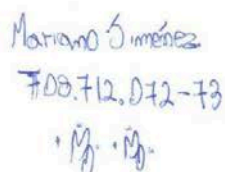 Mariano Jiménez
708.712.072-73
· M. · M.